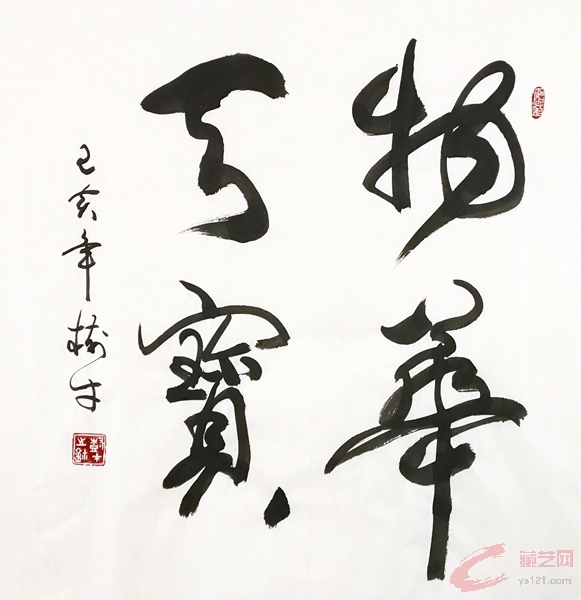 物華
天寶
己亥年
藏艺网
ys121.com